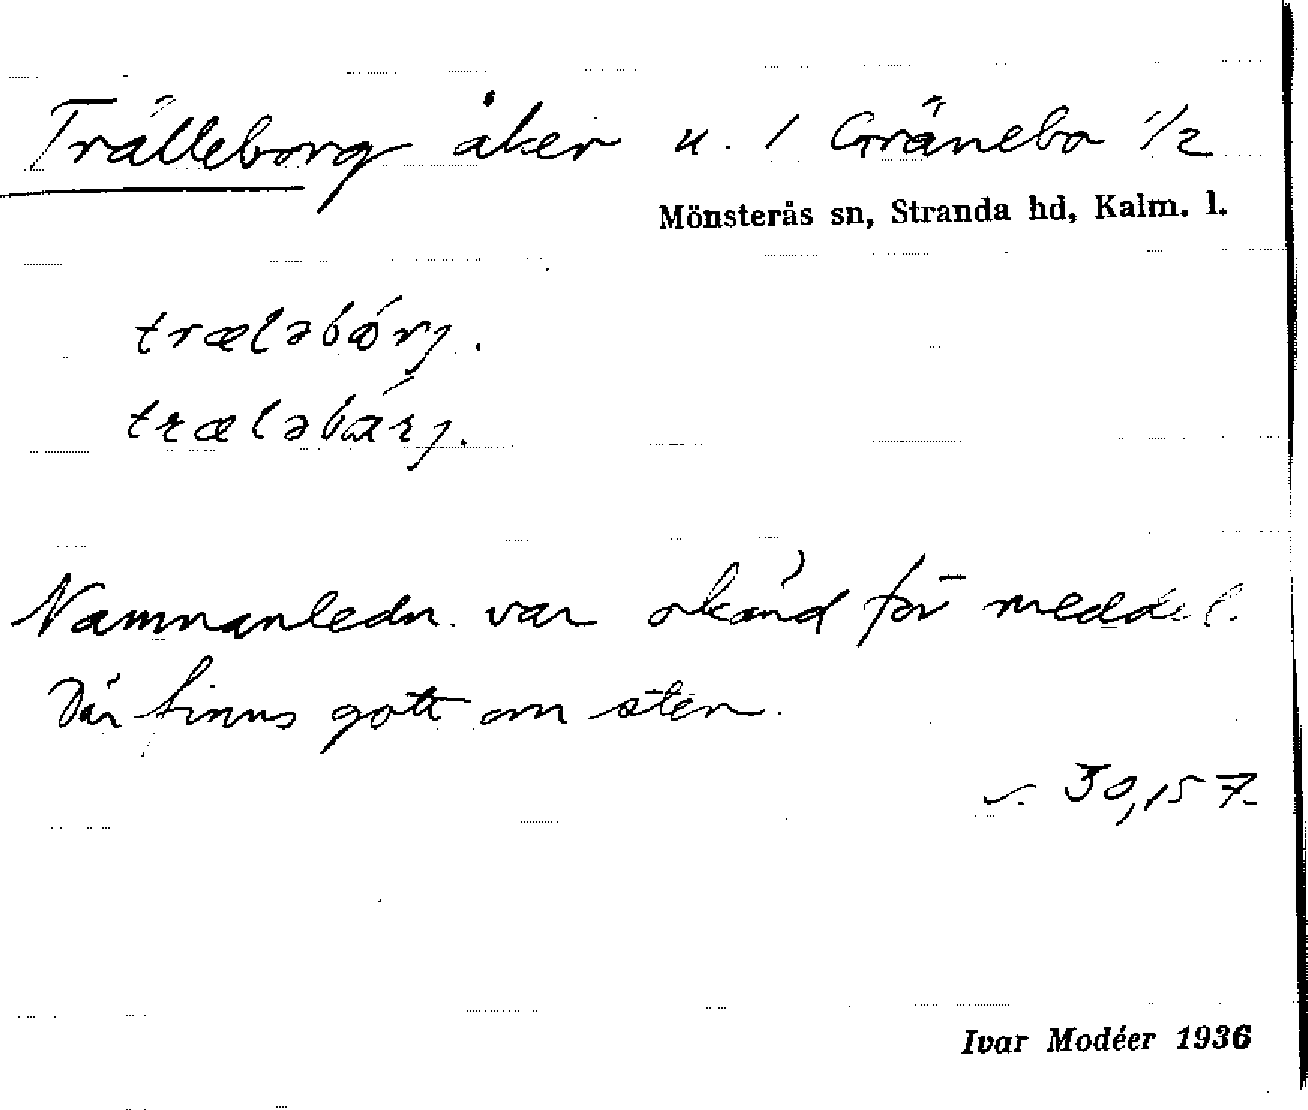 Trälleborg åker u. 1 Gränebo 1/2
Mönsterås sn, Stranda hd, Kalm. l.
træləbórj.
træləbárj.
Namnanledn. var okänd för meddel.
Där finns gott om sten.
30,157.
Ivar Modéer 1936